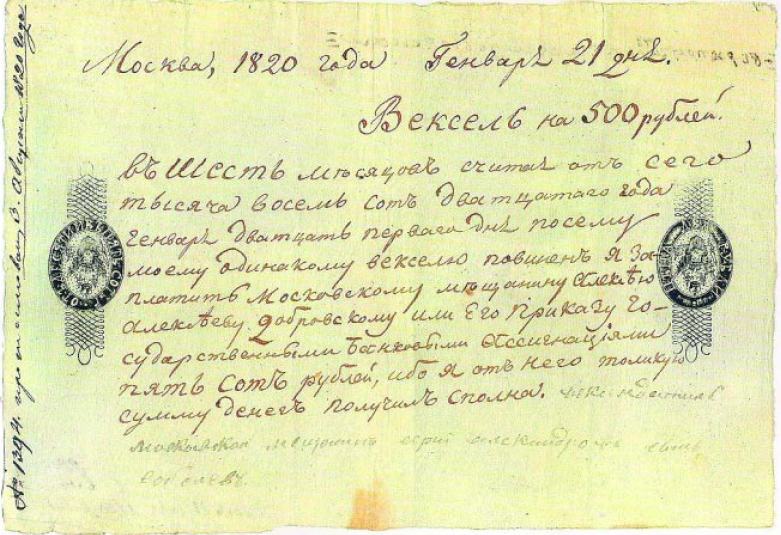 Москва, 1820 года Генварѣ 21 днѣ.
Вексель на 500 рублей.
въ шесть мѣсяцовъ считаѣ отъ сего
тысяча восемь сотъ дватцатаго года
генварѣ дватцать перваго днѣ посему
моему одинакому векселю повиненъ я за-
платить Московскому мѣщанину Алексѣю
Алексѣеву Добровскому или Его Приказу Го-
сударственными Банковыми Ассигнаціями
пять сотъ рублей, ибо я отъ него толикую
сумму денегъ получилъ сполна.
московской мещанинъ
№ 1394 1820 года